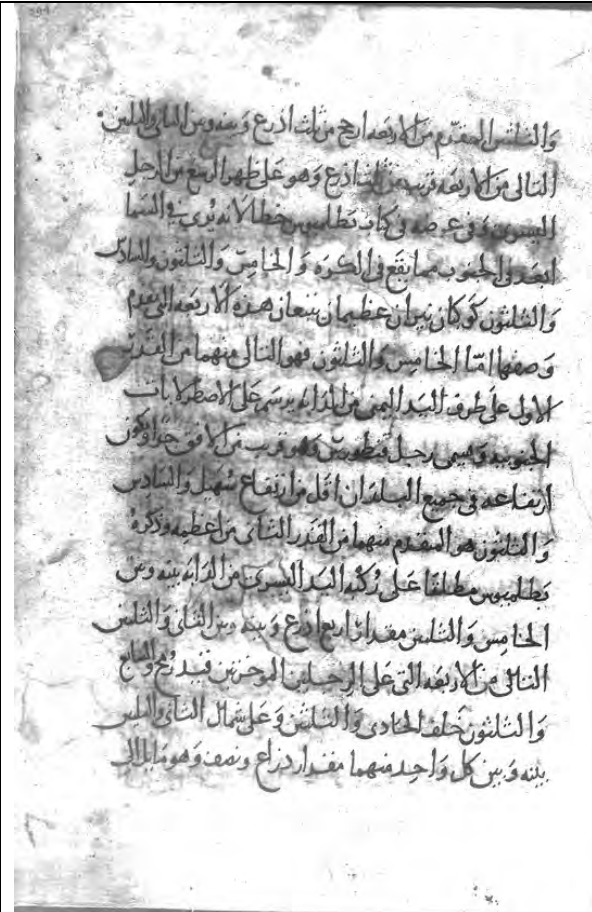 والثلثين المقدم من الاربعه ارجح من ثلث اذرع وبينه وبين الثانى والثلثين
التالى من الاربعه قريب من ثلث اذرع وهو على ظهر الرسغ من الرجل
اليسرى وفى عرضه فى كتاب بطلميوس خطا لانه يرى فى السما
ابعد فى الجنوب مما يقع فى الكره والخامس والثلثون والسادس
والثلثون كوكبان نيران عظيمان يتبعان هذه الاربعه التى تقدم
وصفها امّا الخامس والثلثون فهو التالى منهما من القدر
الاول على طرف اليد اليمنى من الدابه يرسم على الاصطرلابات
الجنوبيه ويسمى رجل قنطورس وهو قريب من الافق جدا ويكون
ارتفاعه فى جميع البلدان اقل من ارتفاع سهيل والسادس
والثلثون هو المتقدم منهما من القدر الثانى من اعظمه وذكره
بطلميوس مطلقا على ركبه اليد اليسرى من الدابه بينه وبين
الخامس والثلثين مقدار اربع اذرع وبينه وبين الثانى والثلثين
التالى من الاربعه التى على الرجلين الموخرتين قيد رمح والسابع
والثلثون خلف الحادى والثلثين وعلى شمال الثانى والثلثين
بينه وبين كل واحد منهما مقدار ذراع ونصف وهو مايل الى